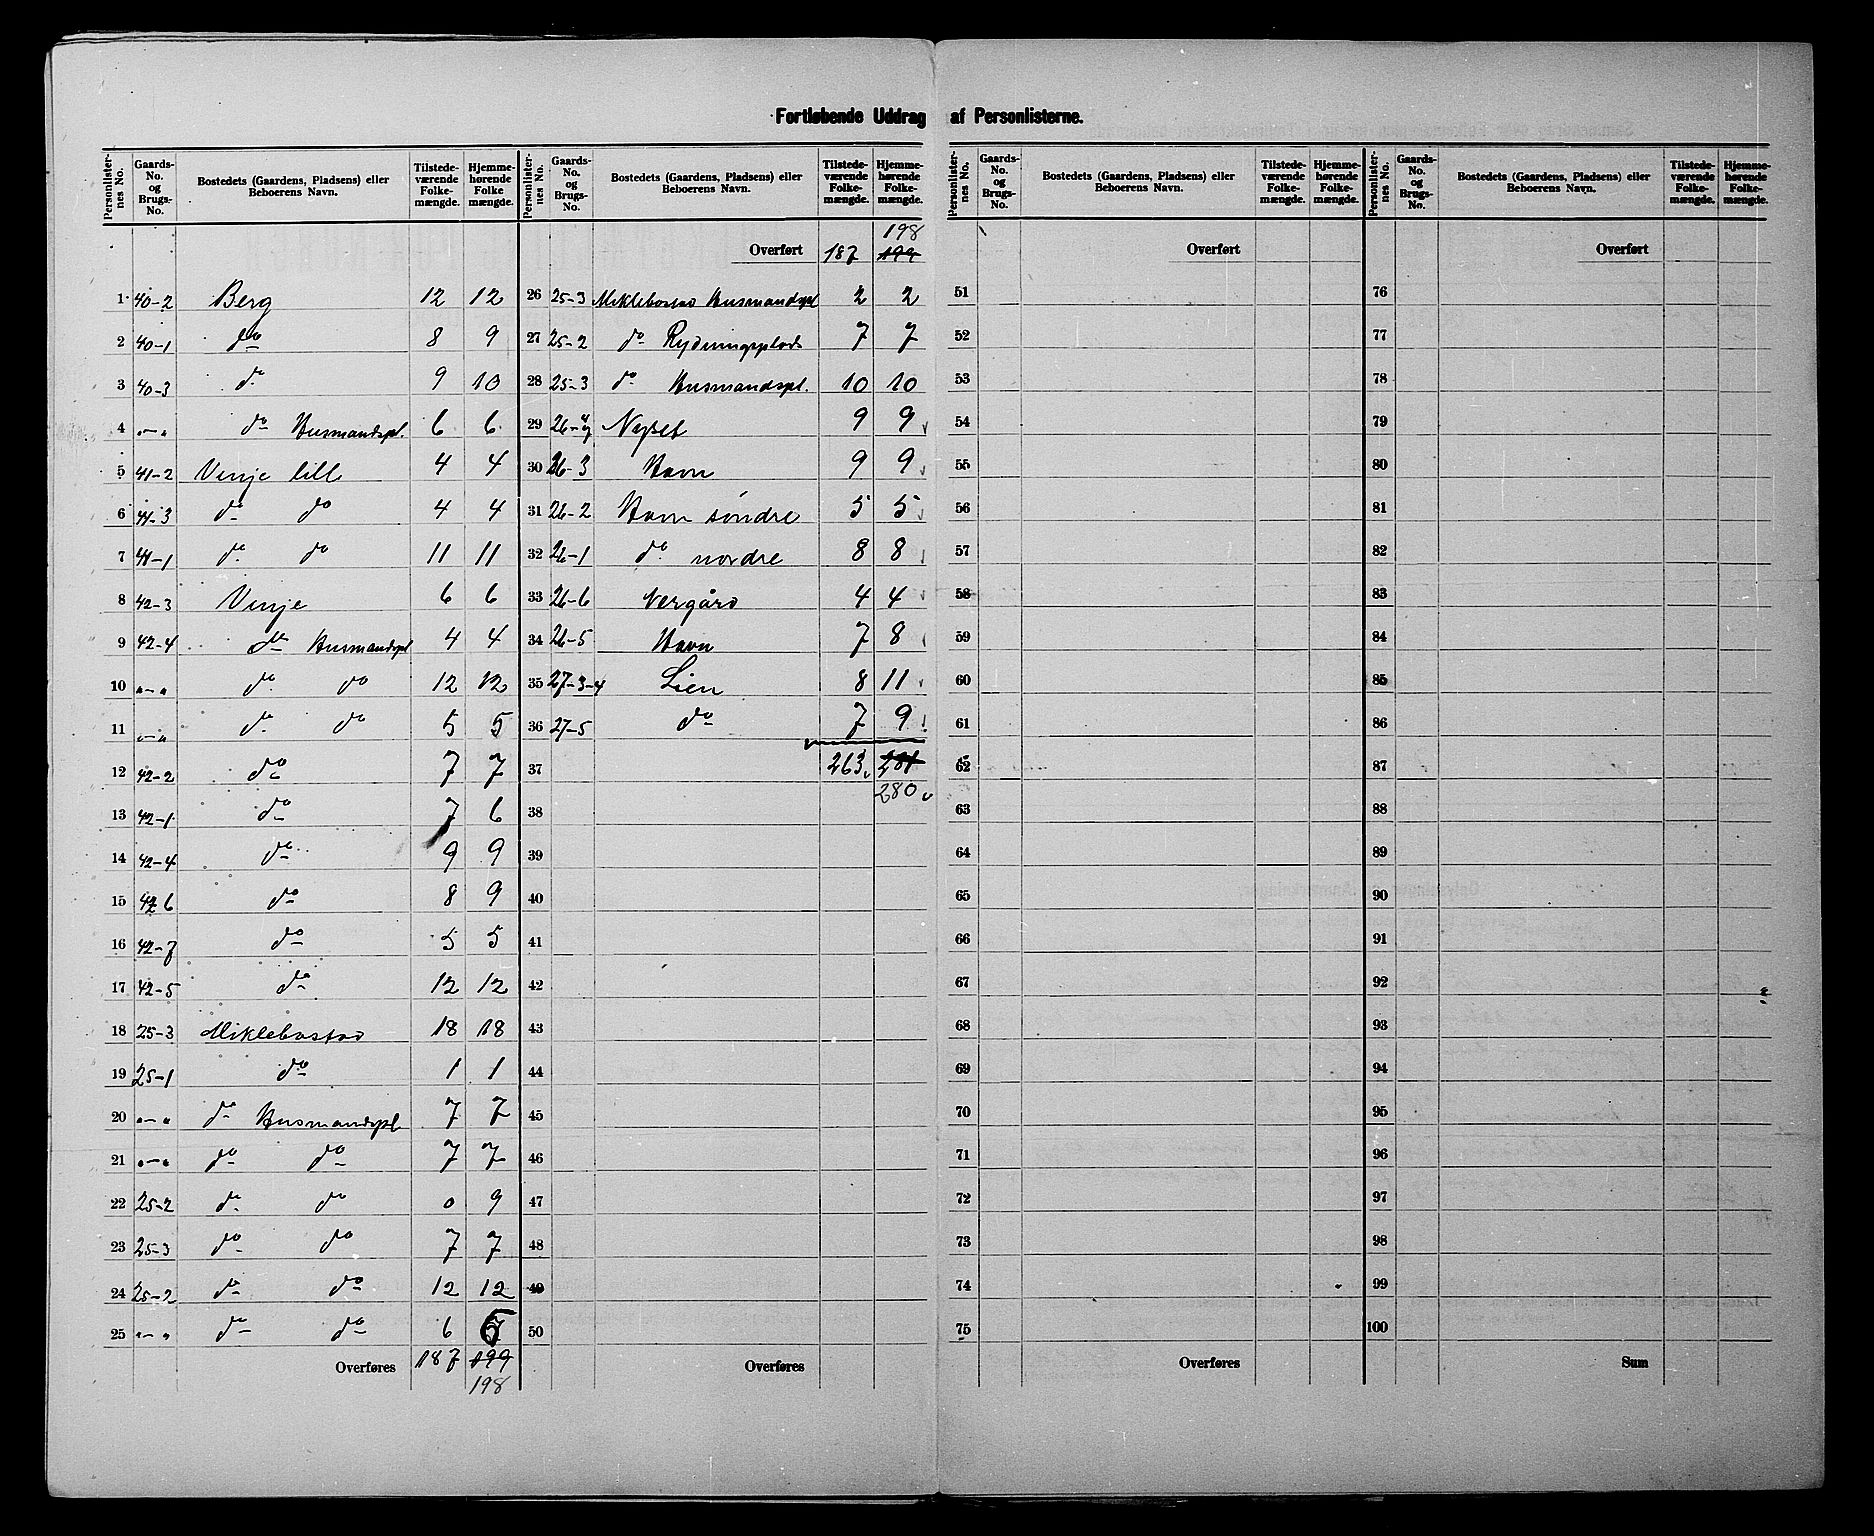 Fortløbende Uddrag af Personlisterne.
Personlister-nes No. | Gaards-No. og Brugs-No. | Bostedets (Gaardens, Pladsens) eller Beboerens Navn. | Tilstede-værende Folke-mængde. | Hjemme-hørende Folke mængde.
1 40-2 Berg 12 12
2 40-1 do 8 9
3 40-3 do 9 10
4 "-" do Husmandspl. 6 6
5 41-2 Vinje lill 4 4
6 41-3 do do 4 4
7 41-1 do do 11 11
8 42-3 Vinje 6 6
9 42-4 do Husmandspl 4 4
10 "-" do do 12 12
11 "-" do do 5 5
12 42-2 do 7 7
13 42-1 do 7 6
14 42-4 do 9 9
15 42 6 do 8 9
16 42-7 do 5 5
17 42-5 do 12 12
18 25-3 Miklebostad 18 18
19 25-1 do 1 1
20 "-" do Husmandspl 7 7
21 "-" do do 7 7
22 25-2 do do 0 9
23 25-3 do do 7 7
24 25-2 do do 12 12
25 "-" do do 6 6
Overføres 187 199
198
Personlister-nes No. | Gaards-No. og Brugs-No. | Bostedets (Gaardens, Pladsens) eller Beboerens Navn. | Tilstede-værende Folke-mængde. | Hjemme-hørende Folke-mængde.
198
Overført 187 199
26 25-3 Miklebostad Husmandspl 2 2
27 25-2 do Rydningsplads 7 7
28 25-3 do Husmandspl. 10 10
29 26- Nyset 9 9
30 26-3 Havn 9 9
31 26-2 Havn søndre 5 5
32 26-1 do nordre 8 8
33 26-6 Nergård 4 4
34 26-5 Havn 7 8
35 27-3-4 Lien 8 11
36 27-5 do 7 9
37 263 281
280
38
39
40
41
42
43
44
45
46
47
48
49
50
Overføres
Personlister-nes No. | Gaards-No. og Brugs-No. | Bostedets (Gaardens, Pladsens) eller Beboerens Navn. | Tilstede-værende Folke-mængde. | Hjemme-hørende Folke-mængde.
Overført
51
52
53
54
55
56
57
58
59
60
61
62
63
64
65
66
67
68
69
70
71
72
73
74
75
Overføres
Personlister-nes No. | Gaards-No. og Brugs-No. | Bostedets (Gaardens, Pladsens) eller Beboerens Navn. | Tilstede-værende Folke-mængde. | Hjemme-hørende Folke-mængde.
Overført
76
77
78
79
80
81
82
83
84
85
86
87
88
89
90
91
92
93
94
95
96
97
98
99
100
Sum